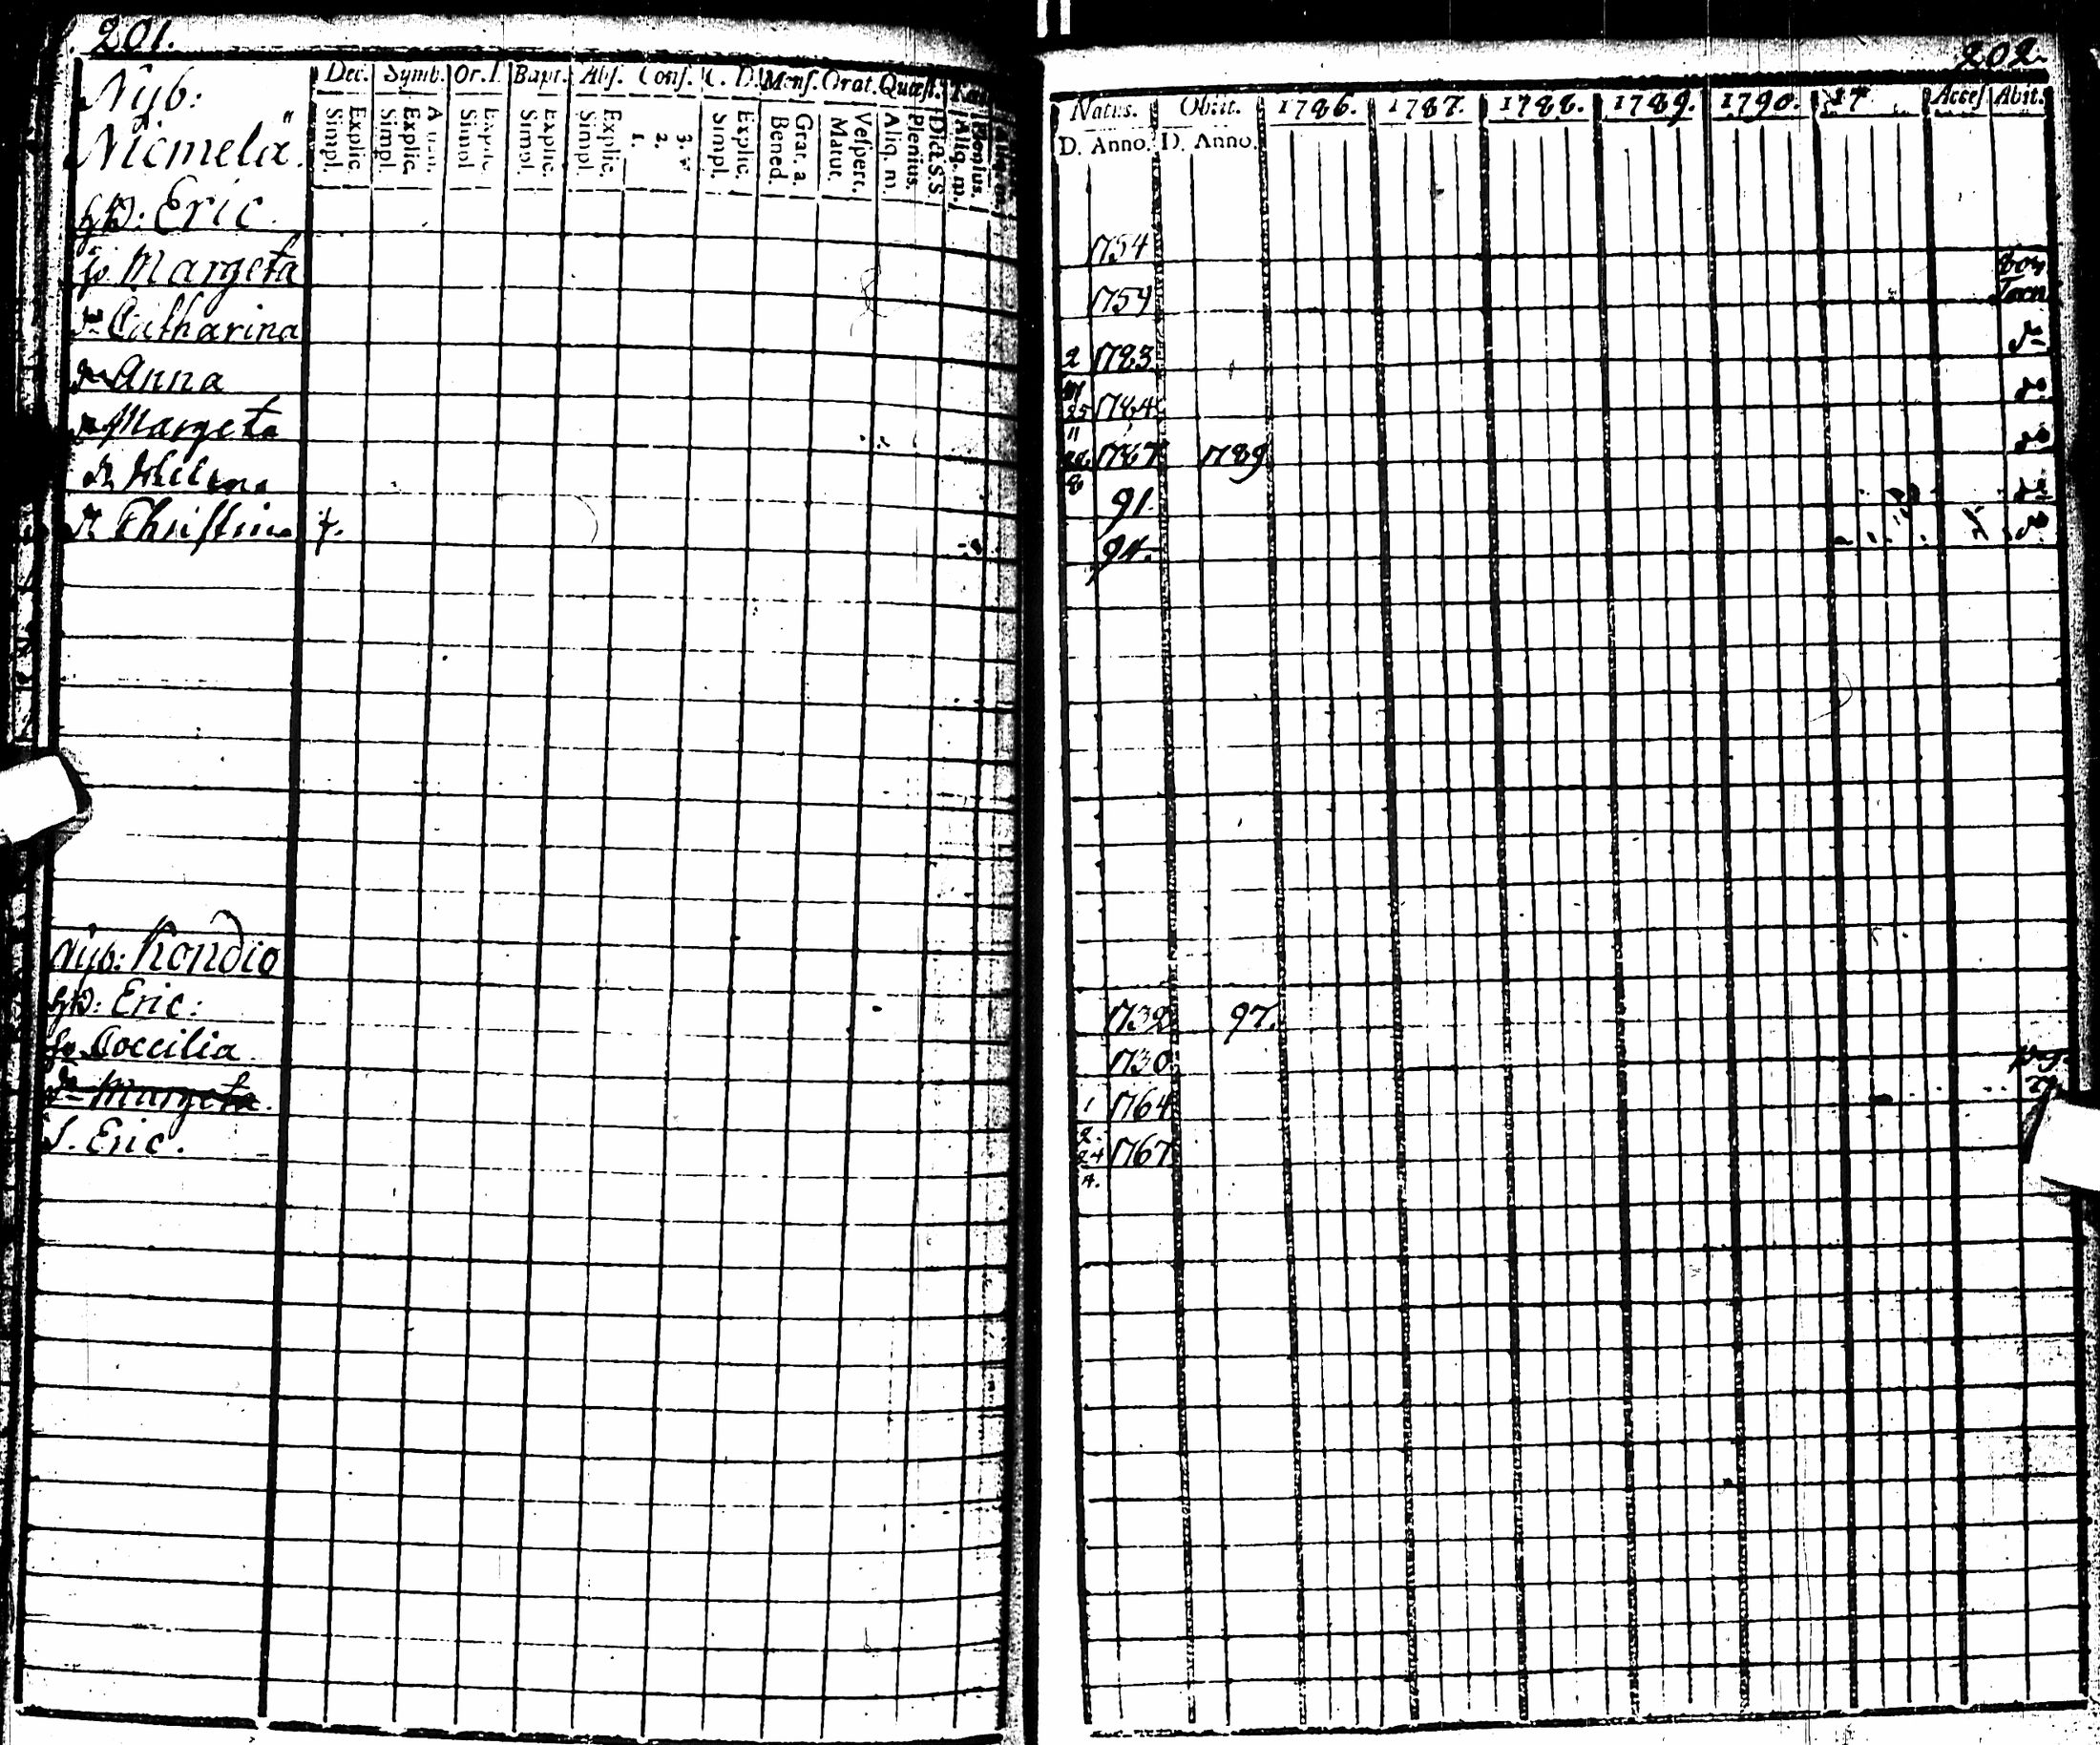 201.
Nyb:
Niemelä.
Dec. Symb. Or. D. Bapt. Abs. Conf. C. D. Mens. Orat. Quæst.
Simpl. Explic. Simpl. Explic. Simpl. Explic. Simpl. Explic. Simpl. Explic. 1. 2. 3. Simpl. Explic. Bened. Grat. a. Matut. Vespert. Aliq. m. Plenius. Dict. S.S. Aliq. m. Plenius.
Eric.
Margeta
Catharina
Anna
Margeta
Helena
Christina †.
Nyb: Kondio
Eric:
Coecilia
Margeta.
S. Eric.
202.
Natus. Obiit. 1786. 1787. 1788. 1789. 1790. 17 Acces Abit.
D. Anno. D. Anno.
1754
1754
2 1783
25 1784
11
1787 1789
8
91.
94.
1732 97.
1730
1 1764
2.
24 1767
4.